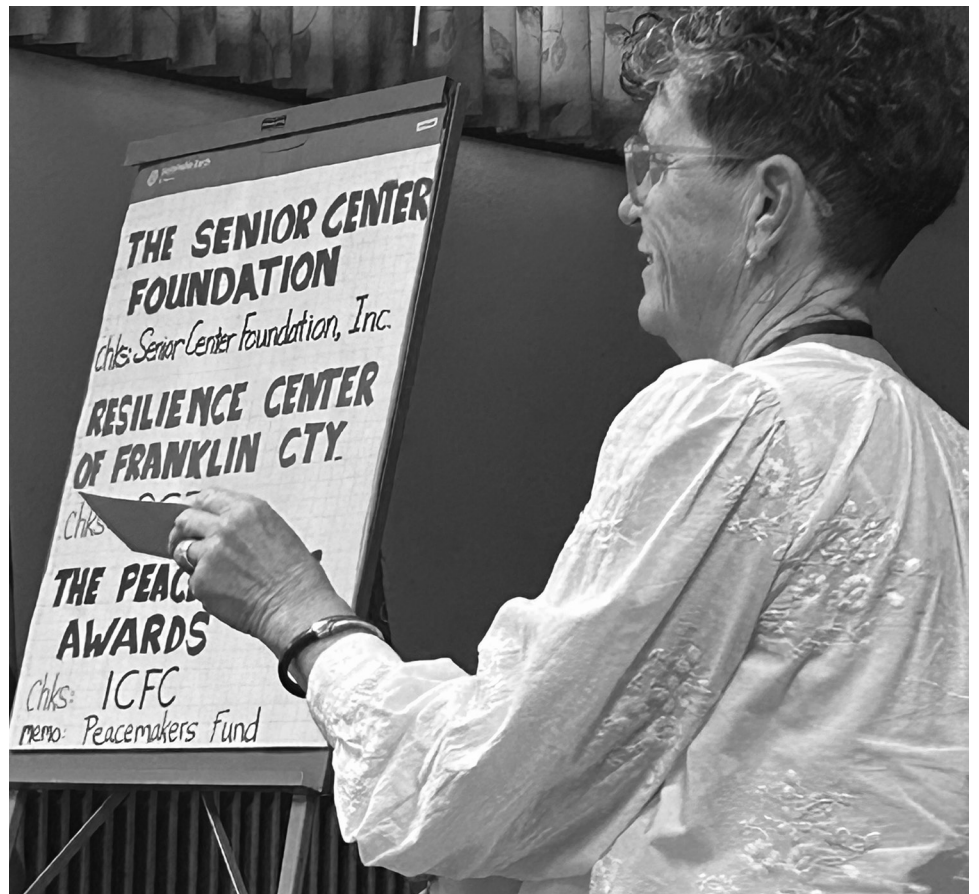 THE SENIOR CENTER
FOUNDATION
Chks: Senior Center Foundation, Inc.
RESILIENCE CENTER
OF FRANKLIN CTY.
Chks
THE
AWARDS
Chks: ICFC
memo: Peacemakers Fund